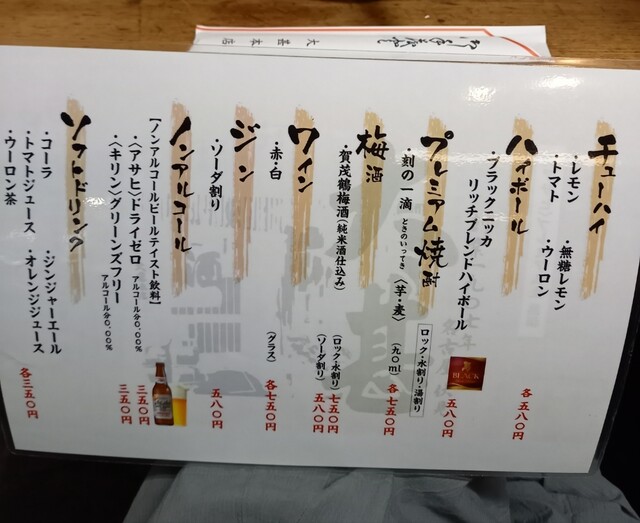 大甚本店
チューハイ
・レモン
・無糖レモン
・トマト
・ウーロン
各 五八〇円
ハイボール
・ブラックニッカ
リッチブレンドハイボール
五八〇円
プレミアム焼酎
・刻の一滴 ときのいってき 〈芋・麦〉
(九〇ml)
ロック・水割り・湯割り
各 七五〇円
梅酒
・賀茂鶴梅酒(純米酒仕込み)
(ロック・水割り) 七五〇円
(ソーダ割り) 五八〇円
ワイン
・赤・白
(グラス)
各 七五〇円
ジン
・ソーダ割り
五八〇円
ノンアルコール
【ノンアルコールビールテイスト飲料】
・〈アサヒ〉ドライゼロ アルコール分0.00%
三五〇円
・〈キリン〉グリーンズフリー アルコール分0.00%
三五〇円
ソフトドリンク
・コーラ
・ジンジャーエール
・トマトジュース
・オレンジジュース
・ウーロン茶
各三五〇円